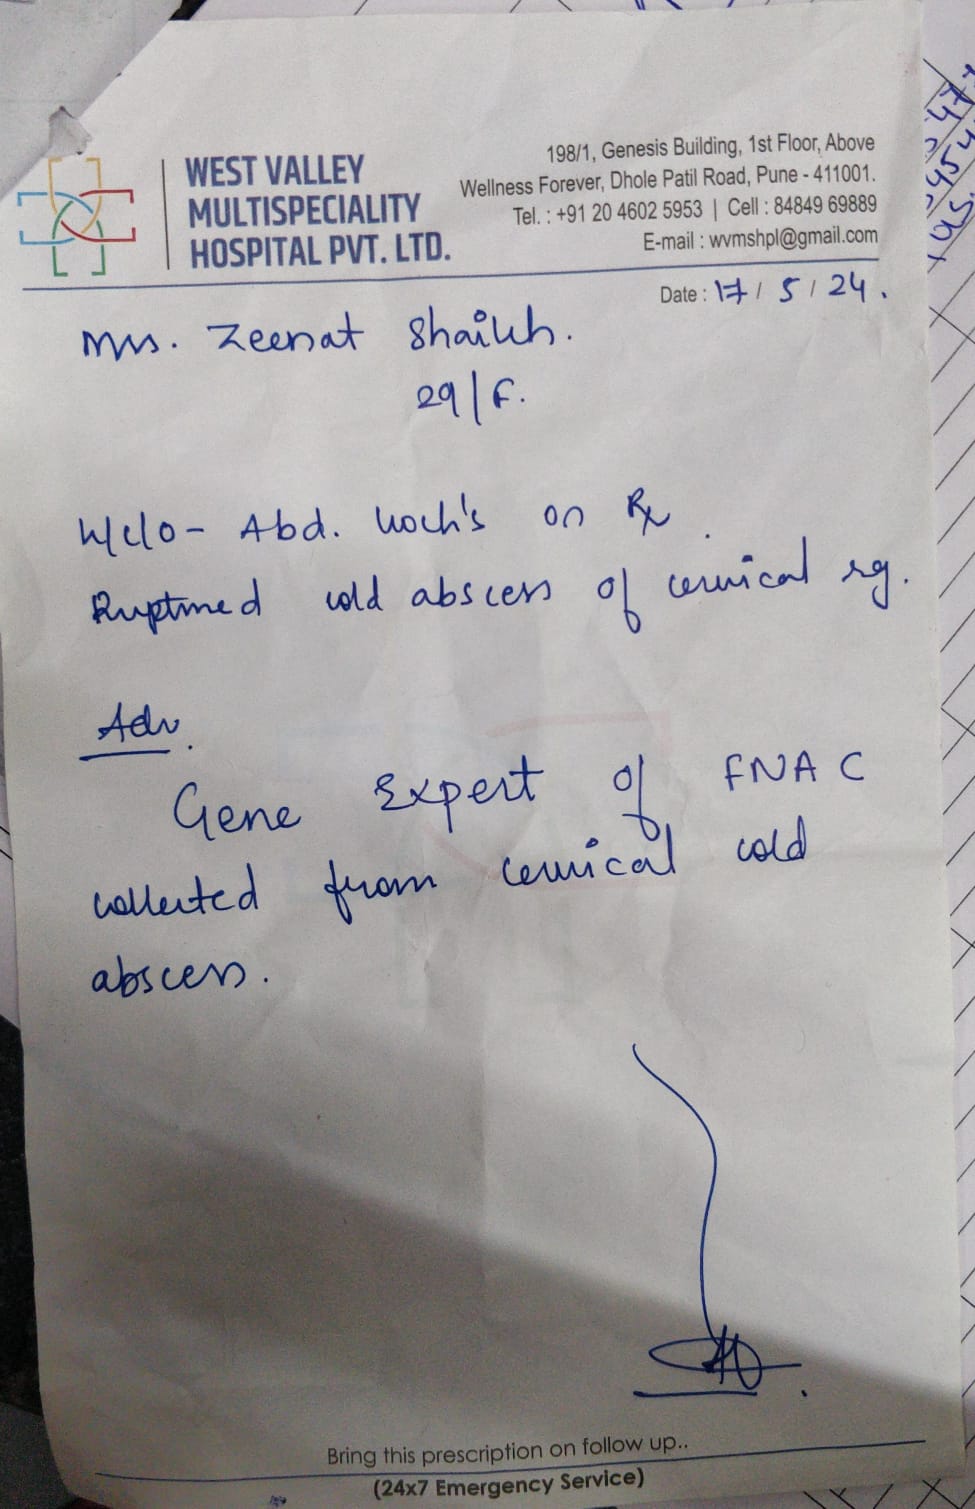 WEST VALLEY
MULTISPECIALITY
HOSPITAL PVT. LTD.
198/1, Genesis Building, 1st Floor, Above
Wellness Forever, Dhole Patil Road, Pune - 411001.
Tel. : +91 20 4602 5953 | Cell : 84849 69889
E-mail : wvmshpl@gmail.com
Date : 17 / 5 / 24.
Mrs. Zeenat Shaikh.
29/F.
h/c/o - Abd. Koch's on Rx
Ruptured cold abscess of cervical rg.
Adv.
Gene Expert of FNAC
collected from cervical cold
abscess.
Bring this prescription on follow up..
(24x7 Emergency Service)